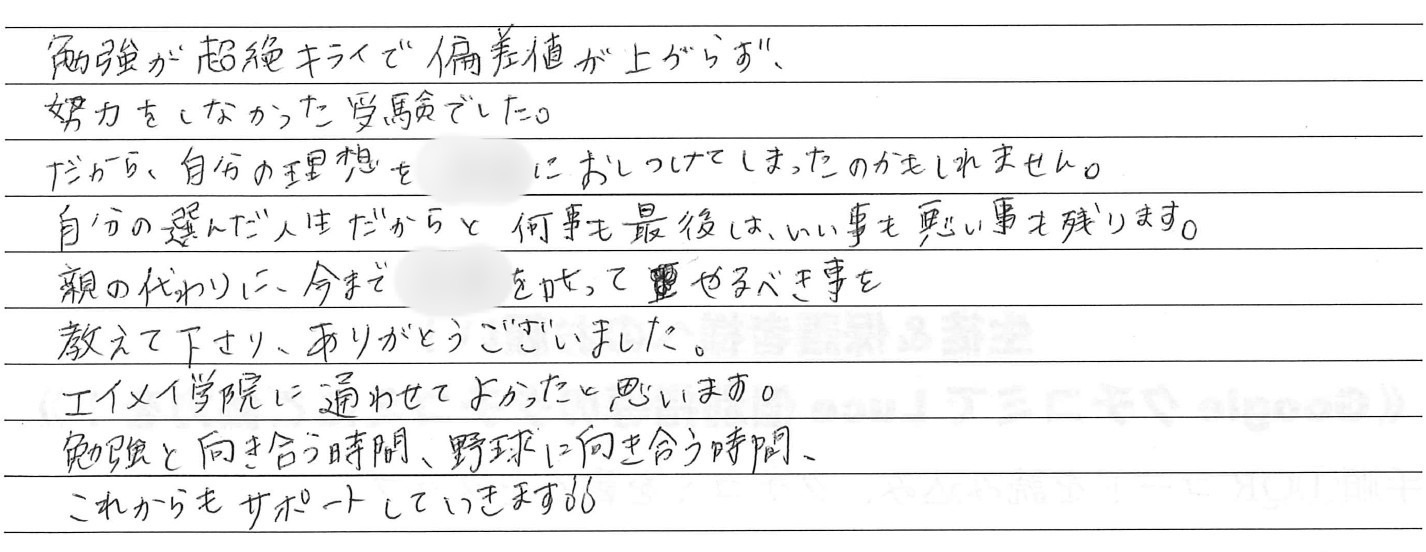 勉強が超絶キライで偏差値が上がらず、
努力をしなかった受験でした。
だから、自分の理想を
におしつけてしまったのかもしれません。
自分の選んだ人生だからと何事も最後は、いい事も悪い事も残ります。
親の代わりに、今まで
を叱って やるべき事を
教えて下さり、ありがとうございました。
エイメイ学院に通わせてよかったと思います。
勉強と向き合う時間、野球に向き合う時間、
これからもサポートしていきます